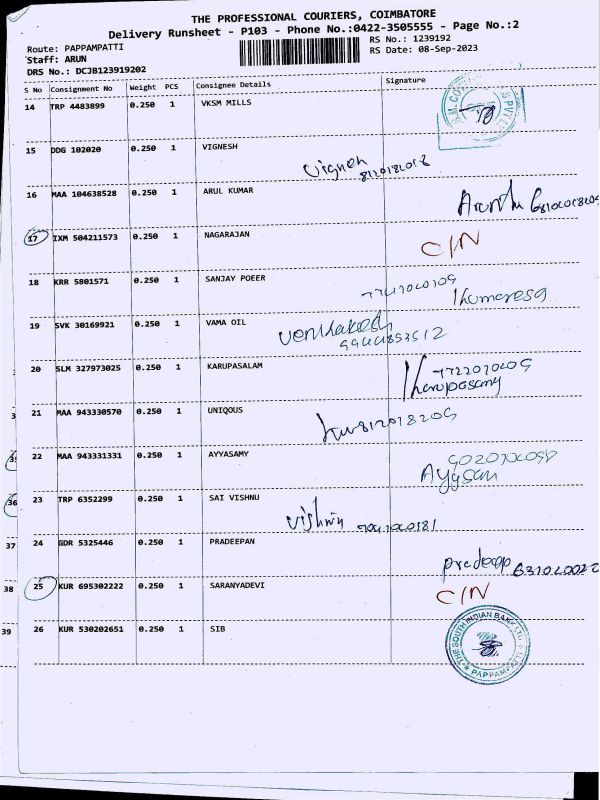 THE PROFESSIONAL COURIERS, COIMBATORE
Delivery Runsheet - P103 - Phone No.:0422-3505555 - Page No.:2
Route: PAPPAMPATTI RS No.: 1239192
Staff: ARUN RS Date: 08-Sep-2023
DRS No.: DCJB123919202
S No Consignment No Weight PCS Consignee Details Signature
14 TRP 4483899 0.250 1 VKSM MILLS
15 DDG 102020 0.250 1 VIGNESH
Vignesh
16 MAA 104638528 0.250 1 ARUL KUMAR
17 IXM 504211573 0.250 1 NAGARAJAN
C/N
18 KRR 5801571 0.250 1 SANJAY POEER
19 SVK 30169921 0.250 1 VAMA OIL
Venkatesh
20 SLM 327973025 0.250 1 KARUPASALAM
Karupasamy
21 MAA 943330570 0.250 1 UNIQOUS
22 MAA 943331331 0.250 1 AYYASAMY
36 23 TRP 6352299 0.250 1 SAI VISHNU
37 24 GDR 5325446 0.250 1 PRADEEPAN
pradeep
38 25 KUR 695302222 0.250 1 SARANYADEVI
C/N
39 26 KUR 530202651 0.250 1 SIB
THE SOUTH INDIAN BANK LTD
PAPPAMPATTI